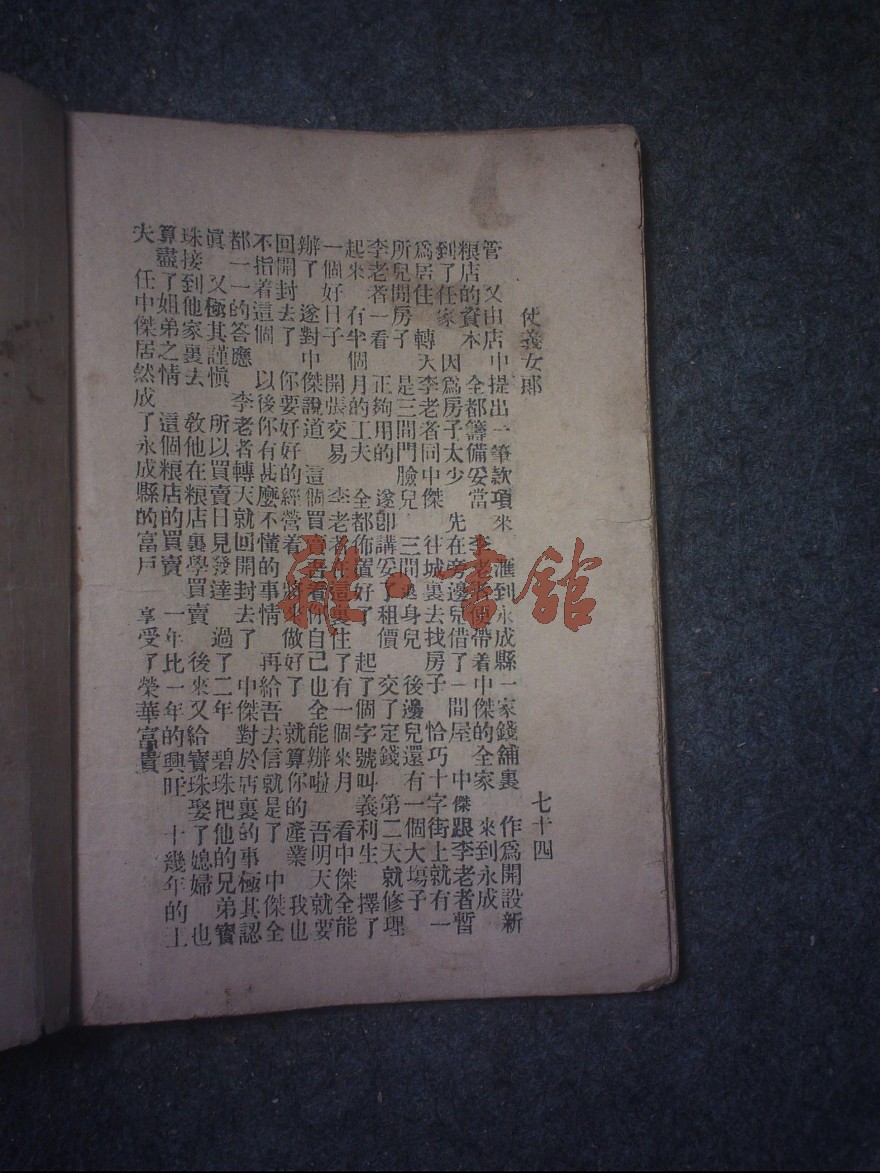 俠義女郎
七十四
管 又由店中提出一筆款項來 滙到永成縣一家錢舖裏 作爲開設新
粮店的資本 全都籌備妥當 李老者便帶着中傑的全家 來到永成
到了任家 因爲房子太少 先在旁邊兒借了一間屋 中傑跟李老者暫
爲居住 轉天李老者同中傑 往城裏去找房子 恰巧十字街上就有一
所兒閒房子 是三間門臉兒 三間過身兒 後邊兒還有一個大塲子
李老者一看 正夠用的 遂卽講妥了租價 交了定錢 第二天就修理
起來 有半個月的工夫 全都佈置好了 起了個字號叫義利生 擇了
一個好日子 開張交易 李老者在這裏住了有一個來月 看中傑全能
辦了 遂對中傑說道 這個買賣吾看你自己也全能辦啦 吾明天就要
回開封去了 你要好好的經營着 將來做好了 就算你的產業 我也
不指着這個 以後你有甚麼不懂的事情 再給吾去信就是了 中傑全
都一一的答應 李老者轉天就回開封去了 中傑對於店裏的事極其認
眞 又極其謹愼 所以買賣日見發達 過了二年 碧珠把他的兄弟寶
珠接到他家裏去 敎他在粮店裏學買賣 後來又給寶珠娶了媳婦 也
算盡了姐弟之情 這個粮店的買賣 一年比一年的興旺 十幾年的工
夫 任中傑居然成了永成縣的富戶 享受了榮華富貴
雜·書館